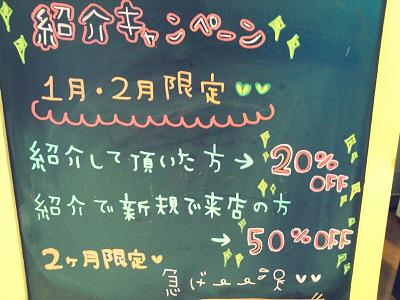 紹介キャンペーン
1月・2月限定
紹介して頂いた方→20%OFF
紹介で新規で来店の方
→50%OFF
2ヶ月限定
急げーー